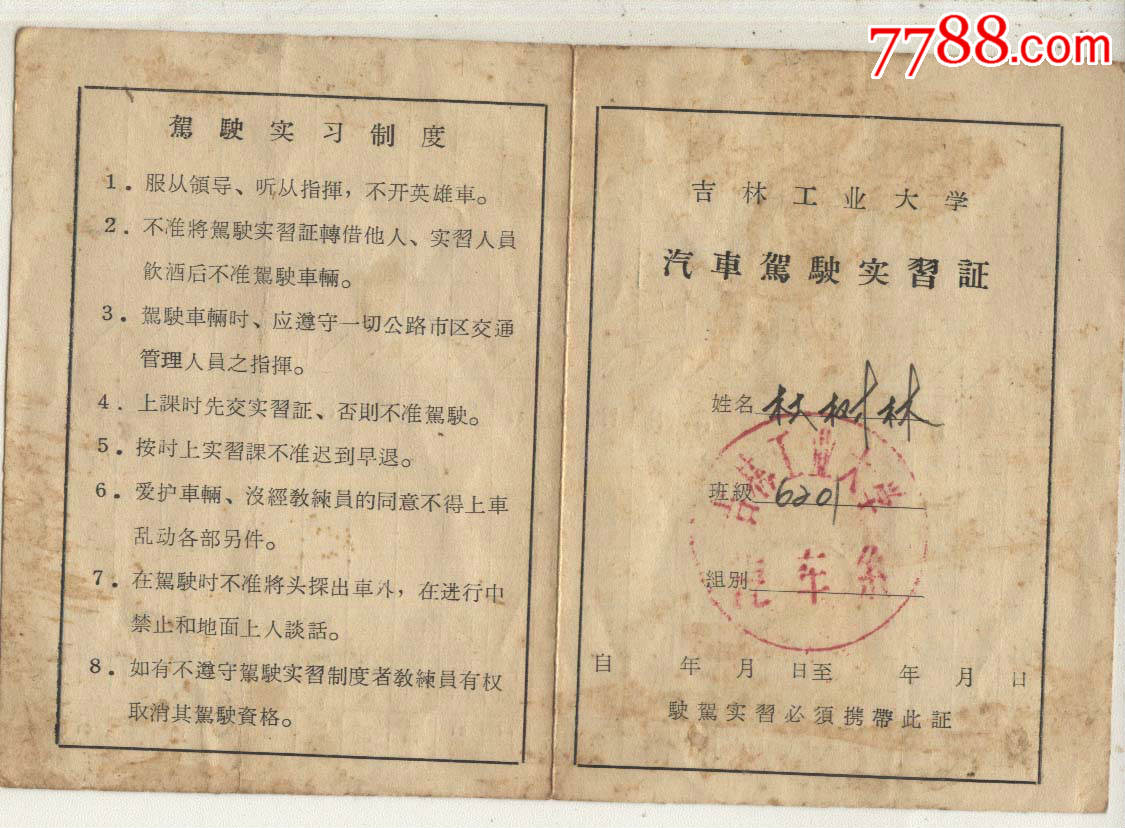 7788.com
駕駛实习制度
1. 服从領导、听从指揮，不开英雄車。
2. 不准將駕駛实習証轉借他人、实習人員
飲酒后不准駕駛車輛。
3. 駕駛車輛时、应遵守一切公路市区交通
管理人員之指揮。
4. 上課时先交实習証、否則不准駕駛。
5. 按时上实習課不准迟到早退。
6. 爱护車輛、沒經敎練員的同意不得上車
乱动各部另件。
7. 在駕駛时不准將头探出車外，在进行中
禁止和地面上人談話。
8. 如有不遵守駕駛实習制度者敎練員有权
取消其駕駛資格。
吉林工业大学
汽車駕駛实習証
姓名 树林
班級 6201
組別
吉林工业大学
汽车系
自 年 月 日至 年 月 日
駛駕实習必須携帶此証